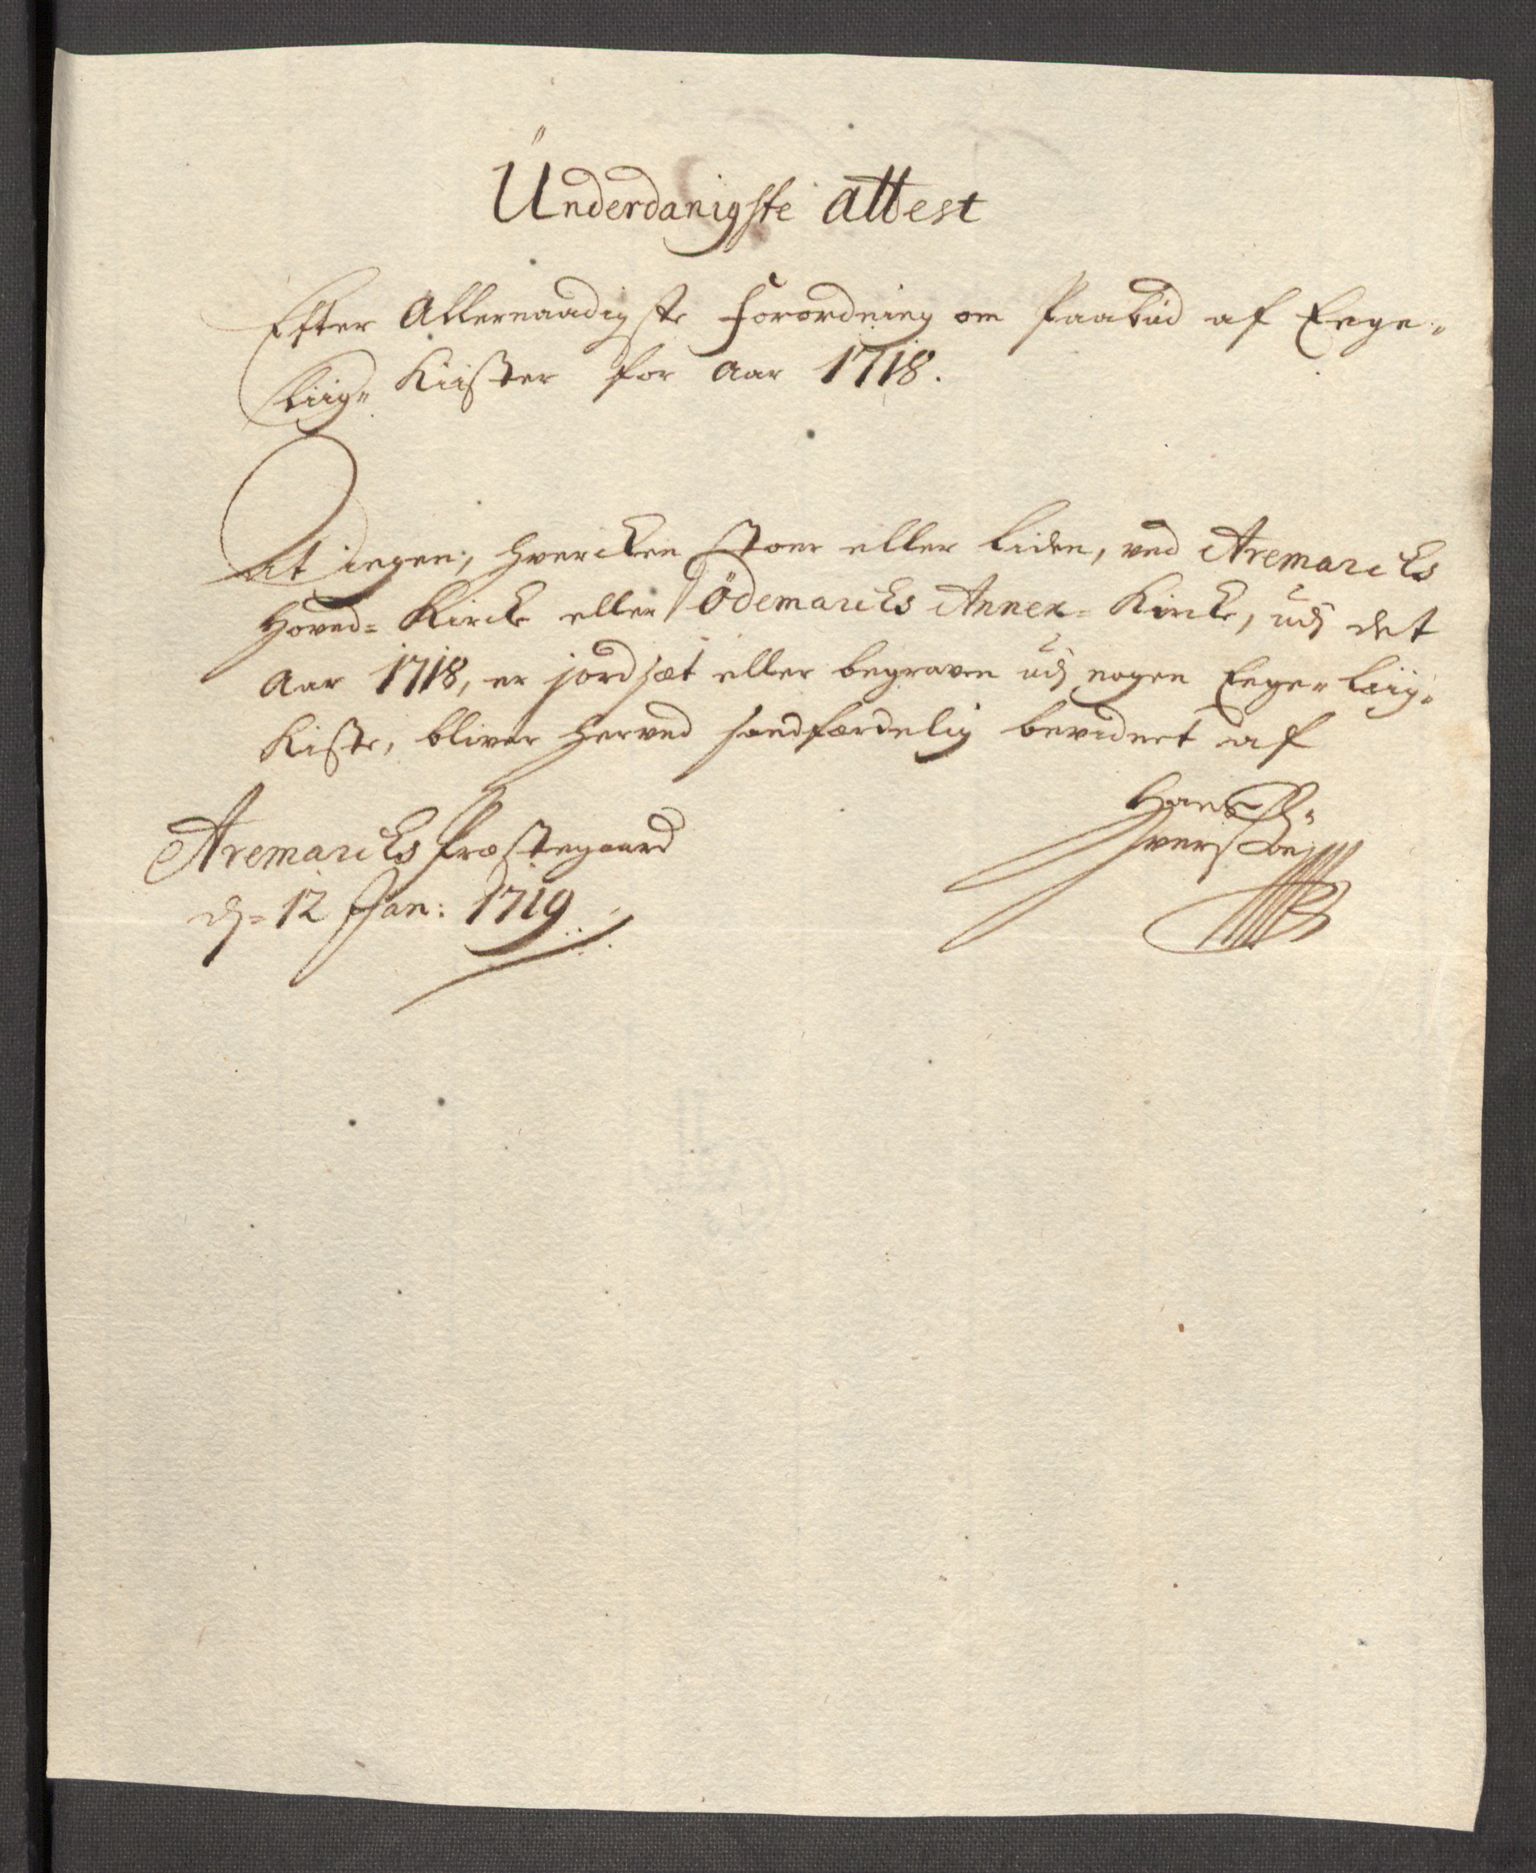 Ünderdanigste attest
Efter Allernaadigste Forordning om Paabud af Eege-
Liig- Kiister for Aar 1718.
At ingen, hvercken stoer eller liden, ved Aremarcks
Hoved- Kircke eller Ödemarcks Annex- Kircke, udj det
Aar 1718, er jordsæt eller begraven udj nogen Eege- Liig-
Kiste, bliver herved sandfærdelig bevidnet af
Hans
Iversøn
Aremarcks Præstegaard
d: 12 Jan: 1719